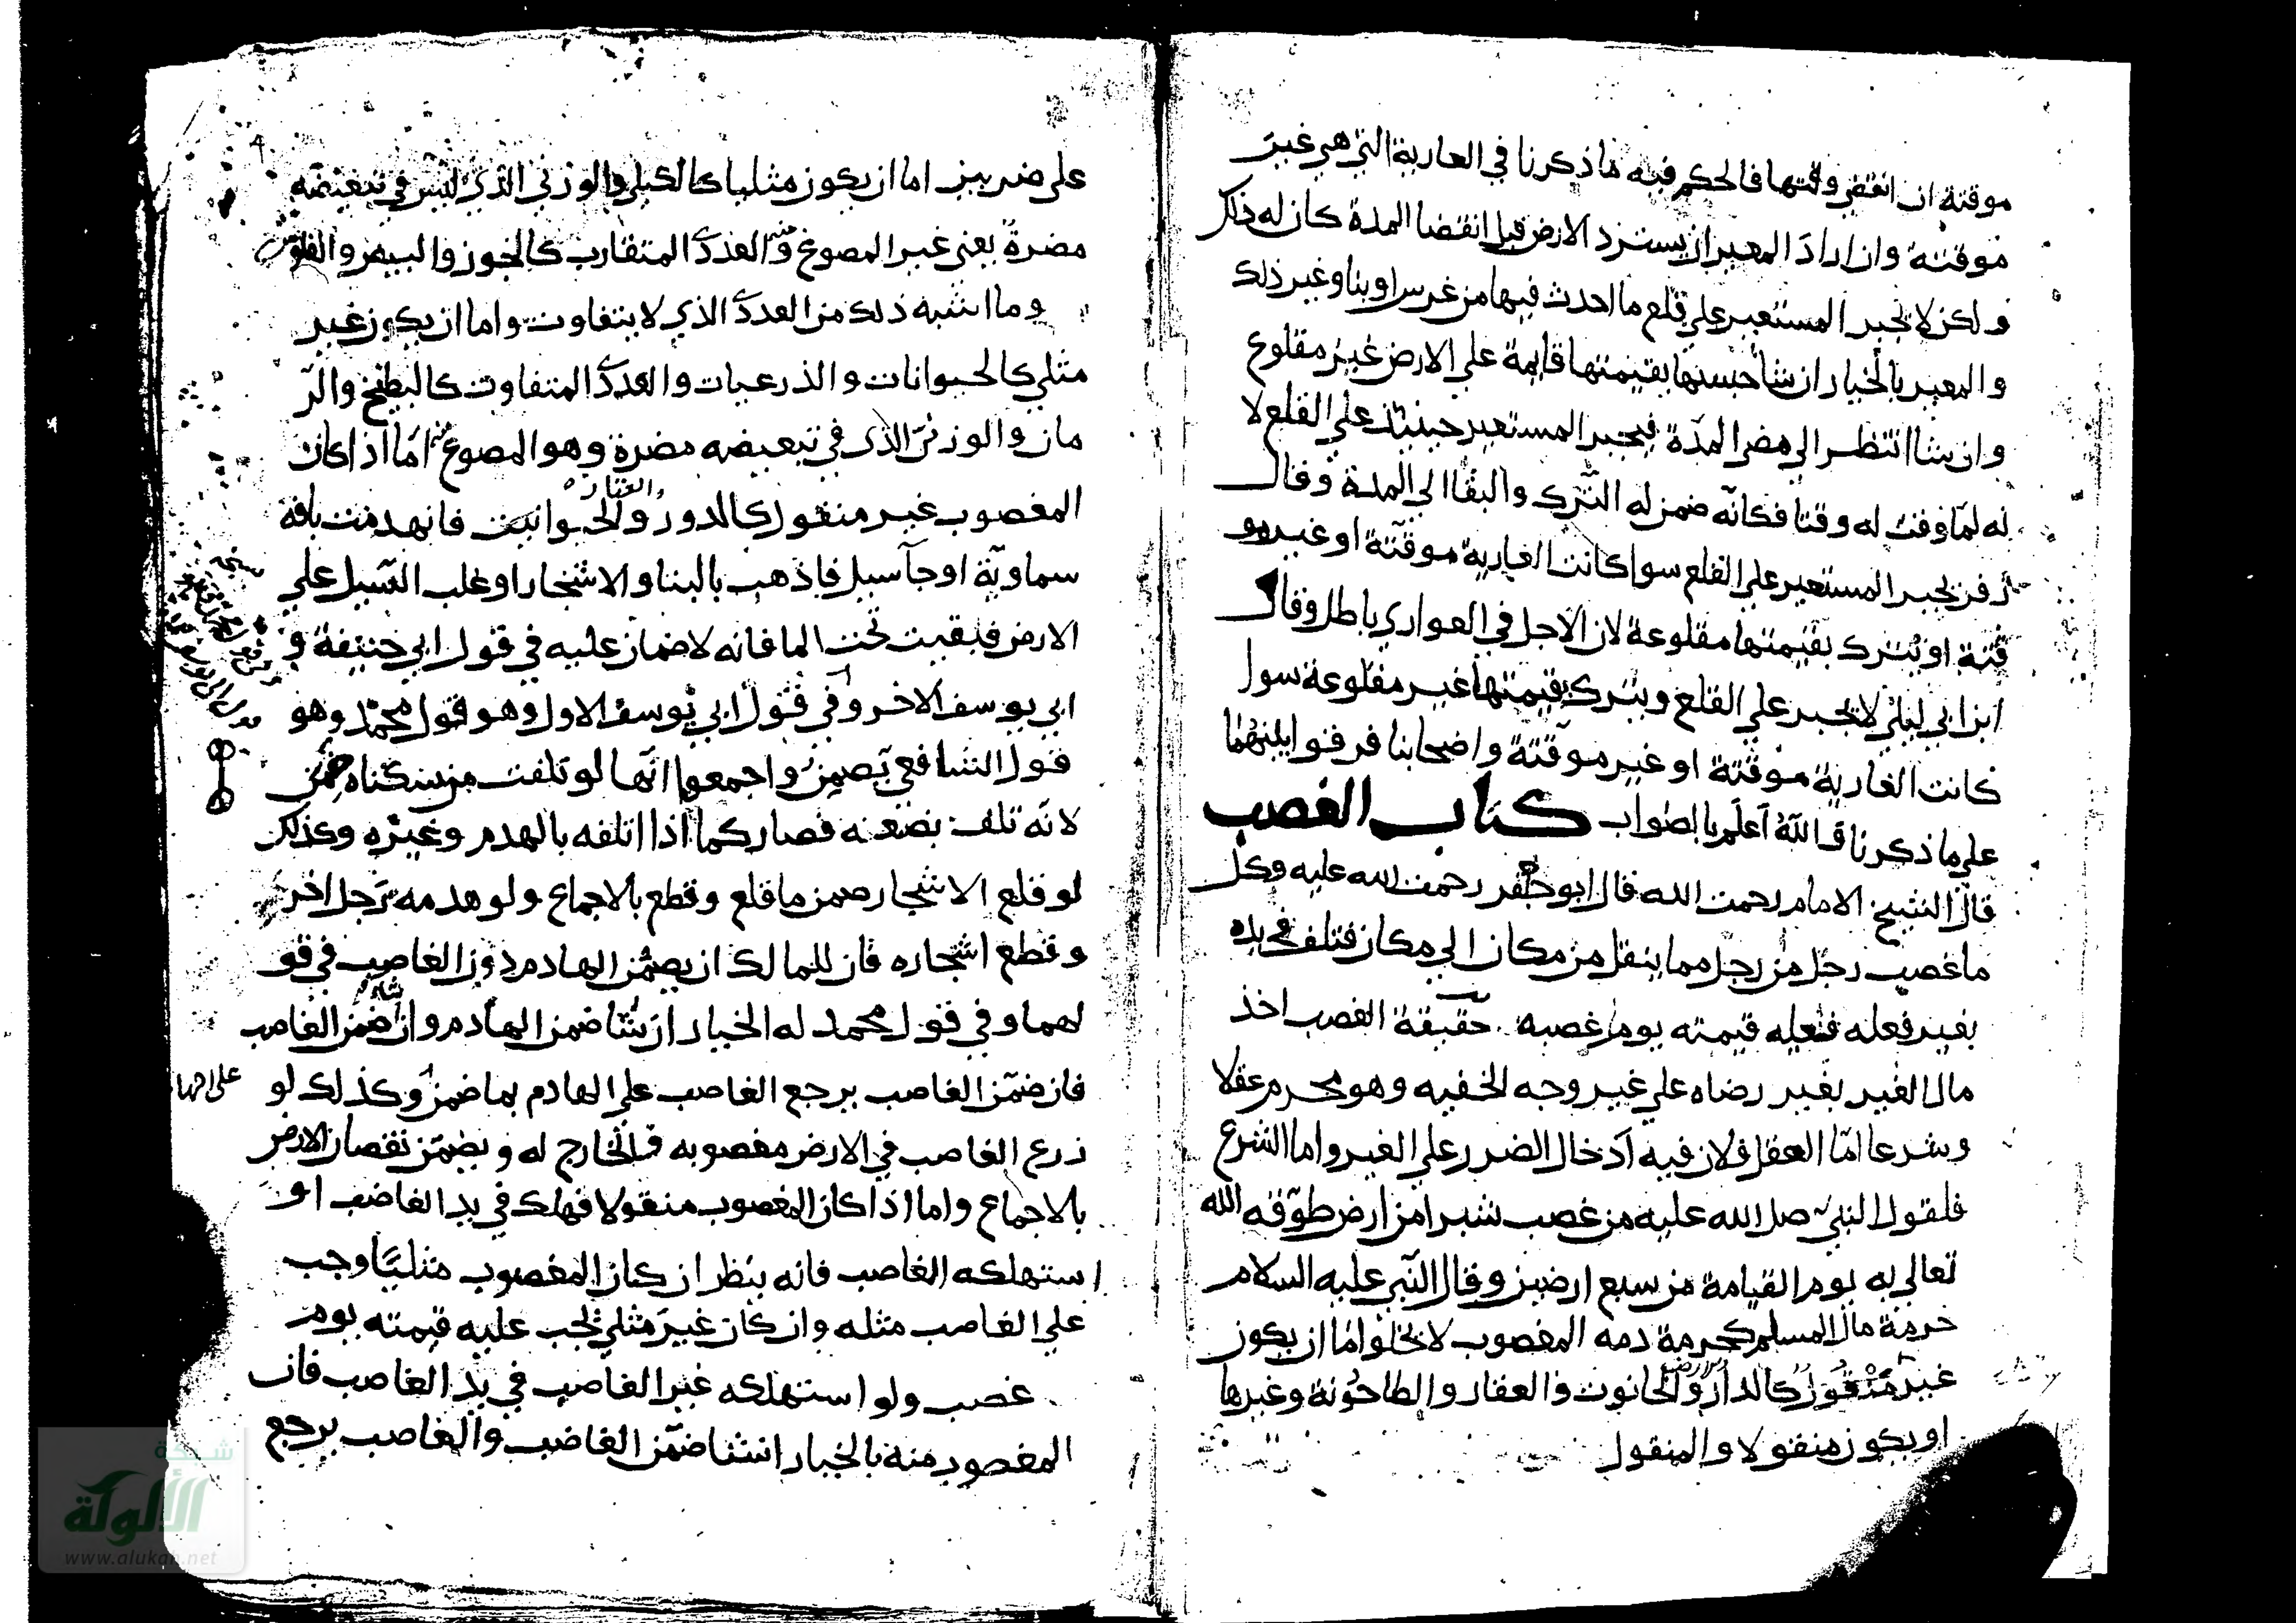 موقتة ان انقضى وقتها فالحكم فيه ما ذكرنا في العارية التي هي غير
موقتة وان اراد المعير ان يسترد الارض قبل انقضا المدة كان له ذلك
ولكن لا يجبر المستعير على قلع ما احدث فيها من غرس او بنا وغير ذلك
والمعير بالخيار ان شا حبسها بقيمتها قايمة على الارض غير مقلوع
وان شا انتظر الى مضى المدة فيجبر المستعير حينئذ على القلع لا
نه لما وقت له وقتا فكانه ضمن له الترك والبقا الى المدة وقال
زفر يجبر المستعير على القلع سوا كانت العارية موقتة او غير مو
قتة او يترك بقيمتها مقلوعة لان الاجل في العواري باطل وقال
ابن ابي ليلى لا يجبر على القلع ويترك بقيمتها غير مقلوعة سوا
كانت العارية موقتة او غير موقتة واصحابنا فرقوا بينهما
على ما ذكرنا والله اعلم بالصواب كتاب الغصب
قال الشيخ الامام رحمت الله قال ابو جعفر رحمت الله عليه وكل
ما غصب رجل من رجل مما ينقل من مكان الى مكان فتلف في يده
بغير فعله فعليه قيمته يوم غصبه حقيقة الغصب اخذ
مال الغير بغير رضاه على غير وجه الخفيه وهو محرم عقلا
وشرعا اما العقل فلان فيه ادخال الضرر على الغير واما الشرع
فلقول النبي صل الله عليه من غصب شبرا من ارض طوقه الله
تعالى به يوم القيامة من سبع ارضين وقال النبي عليه السلام
حرمة مال المسلم كحرمة دمه المغصوب لا يخلوا اما ان يكون
غير منقول كالدار والحانوت والعقار والطاحونة وغيرها
او يكون منقولا والمنقول
على ضربين اما ان يكون مثليا كالكيلي والوزني الذي ليس في تبعيضه
مضرة يعنى غير المصوغ والعددى المتقارب كالجوز والبيض والفلوس
وما اشبه ذلك من العددى الذي لا يتفاوت واما ان يكون غير
مثلي كالحيوانات والذرعيات والعددى المتفاوت كالبطيخ والر
مان والوزني الذى في تبعيضه مضرة وهو المصوغ منه اما اذا كان
المغصوب غير منقول كالدور والعقار والحوانيت فانهدمت بافة
سماوية او جآ سيل فاذهب بالبنا والاشجار او غلب السيل على
الارض فبقيت تحت الما فانه لا ضمان عليه في قول ابي حنيفة و
ابي يوسف الاخر وفي قول ابي يوسف الاول وهو قول محمد وهو
قول الشافعي يضمن واجمعوا انها لو تلفت من سكناه ضمن
لانه تلف بضعنه فصار كما اذا اتلفه بالهدم وغيره وكذلك
لو قلع الاشجار ضمن ما قلع وقطع بالاجماع ولو هدمه رجل اخر
وقطع اشجاره فان للمالك ان يضمن الهادم دون الغاصب في قو
لهما وفي قول محمد له الخيار ان شا ضمن الهادم وان شا ضمن الغاصب
فان ضمن الغاصب يرجع الغاصب على الهادم بما ضمن وكذلك لو
زرع الغاصب في الارض مغصوبه فالخارج له ويضمن نقصان الارض
بالاجماع واما اذا كان المغصوب منقولا فهلك في يد الغاصب او
استهلكه الغاصب فانه ينظر ان كان المغصوب مثليا وجب
على الغاصب مثله وان كان غير مثلي يجب عليه قيمته يوم
غصب ولو استهلكه غير الغاصب في يد الغاصب فان
المغصوب منه بالخيار انشا ضمن الغاصب والغاصب يرجع
شبكة
الألوكة
www.alukah.net